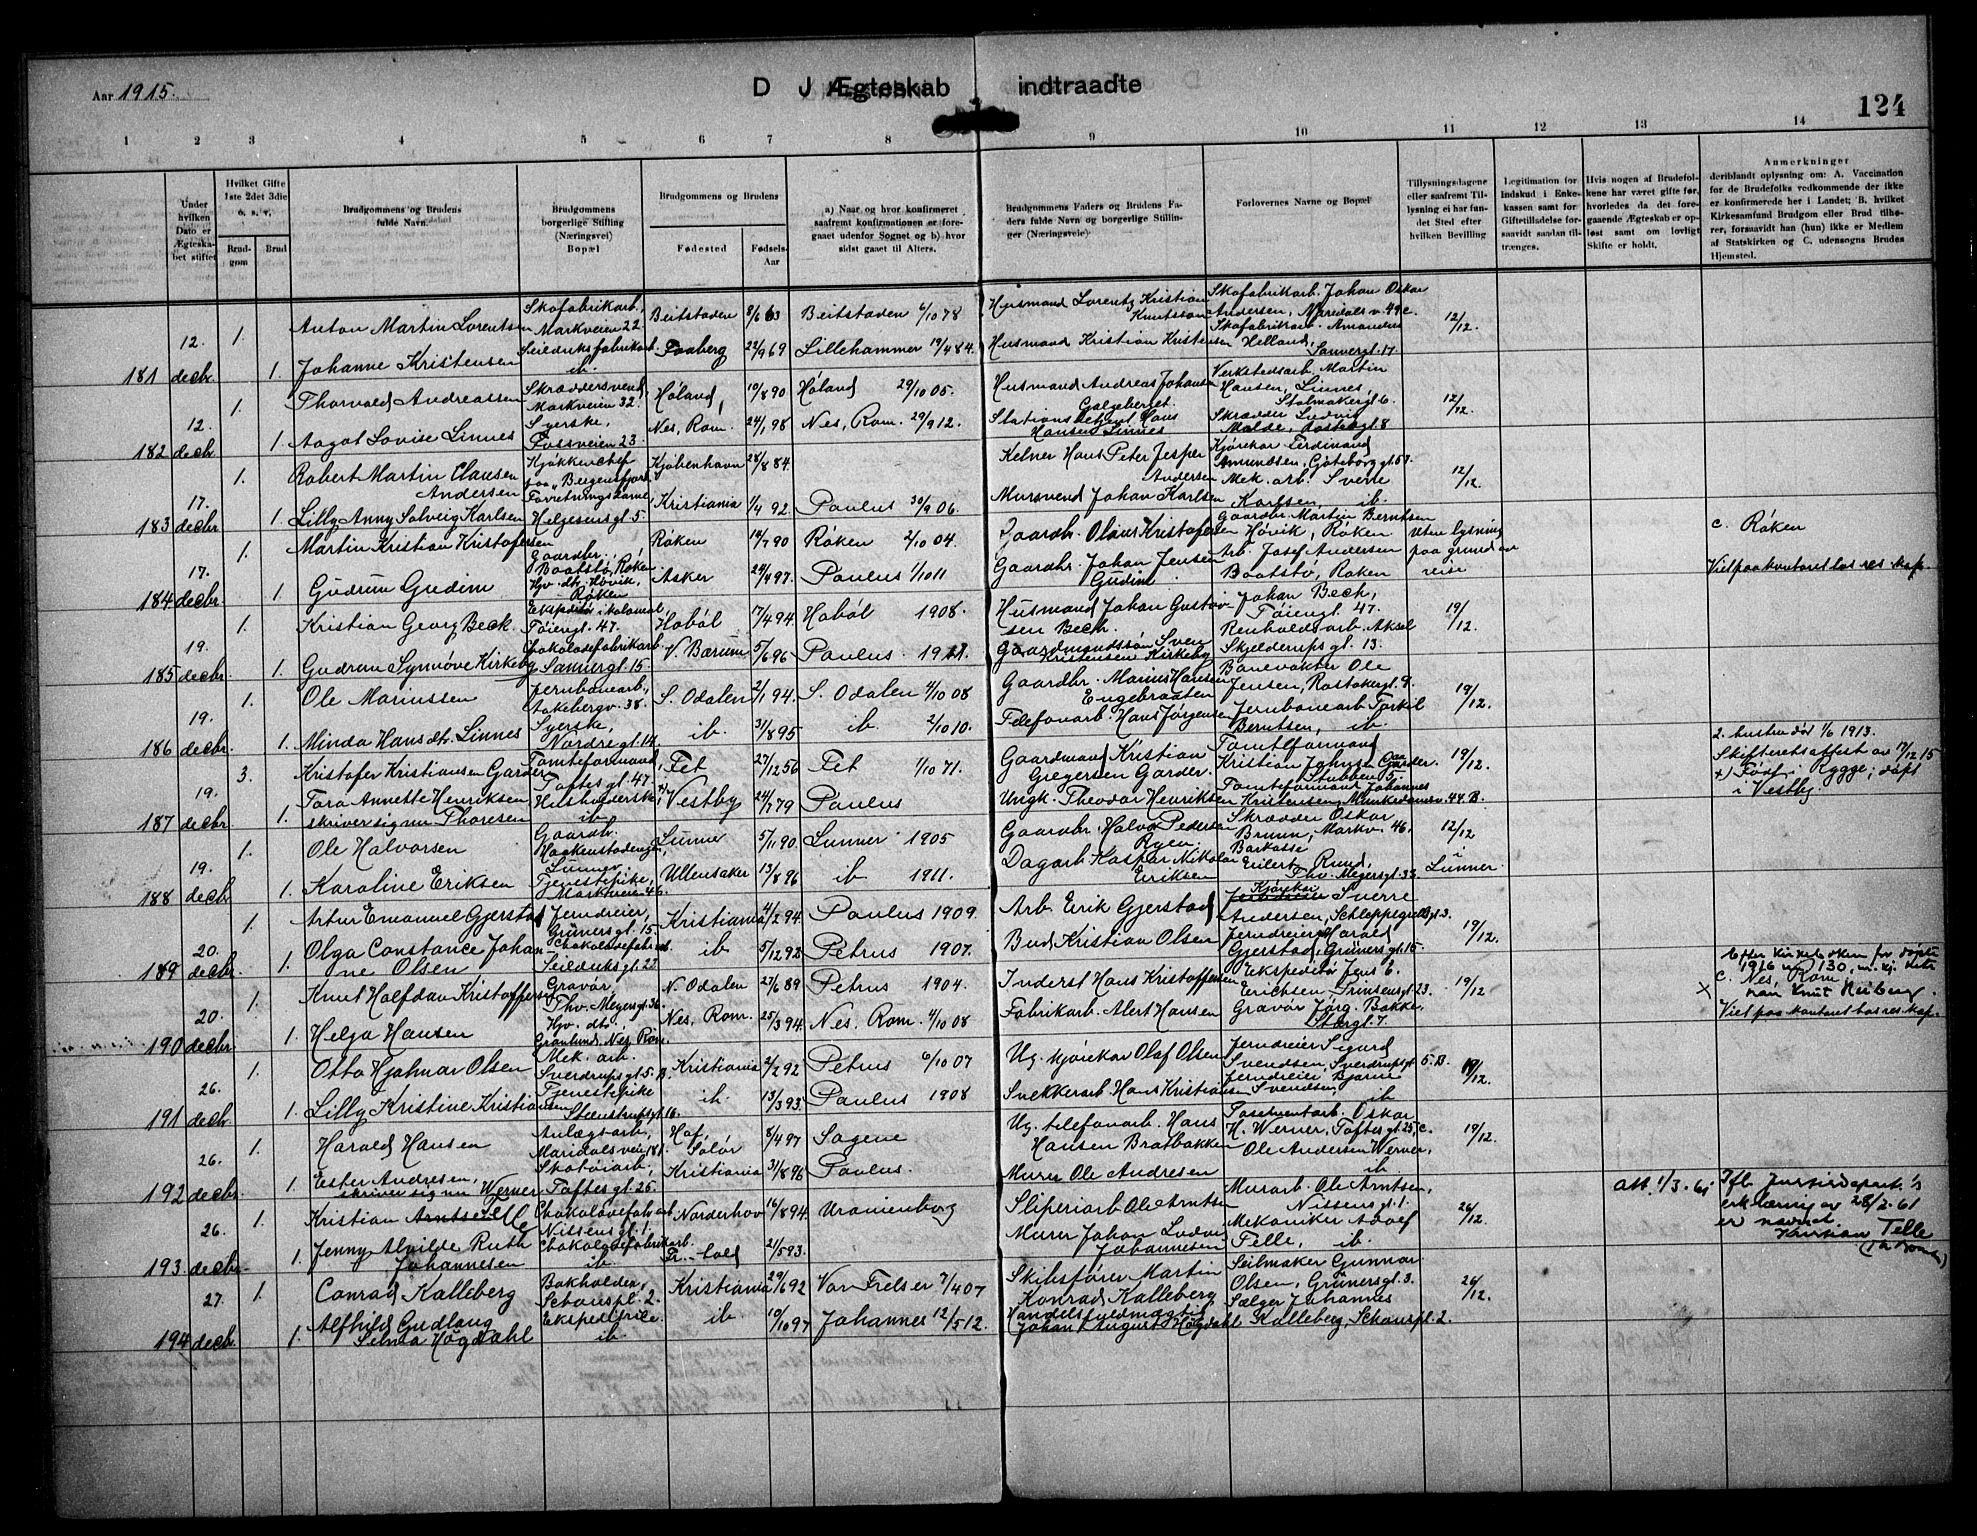 Aar 1915.
D J Ægteskab indtraadte
124
1 2 3 4 5 6 7 8 9 10 11 12 13 14
Under hvilken Dato er Ægteskabet stiftet
Hvilket Gifte 1ste 2det 3die o. s. v.
Brudgom
Brud
Brudgommens og Brudens fulde Navn.
Brudgommens borgerlige Stilling (Næringsvei) Bopæl
Brudgommens og Brudens
Fødested
Fødsels-Aar
a) Naar og hvor konfirmeret saafremt konfirmationen er foregaaet udenfor Sognet og b) hvor sidst gaaet til Alters.
Brudgommens Faders og Brudens Faders fulde Navn og borgerlige Stillinger (Næringsveie)
Forlovernes Navne og Bopæl
Tillysningsdagene eller saafremt Tillysning ei har fundet Sted efter hvilken Bevilling
Legitimation for Indskud i Enkekassen samt for Giftetilladelse forsaavidt saadan tiltrænges.
Hvis nogen af Brudefolkene har været gifte før, hvorledes da det foregaaende Ægteskab er opløst samt om lovligt Skifte er holdt.
Anmerkninger deriblandt oplysning om: A. Vaccination for de Brudefolks vedkommende der ikke er konfirmerede her i Landet; B. hvilket Kirkesamfund Brudgom eller Brud tilhører, forsaavidt han (hun) ikke er Medlem af Statskirken og C. udensogns Brudes Hjemsted.
181 12. decbr. 1. Anton Martin Lorentsen Skofabrikarb., Markveien 22 Beitstaden 8/6 63 Beitstaden 6/10 78 Husmand Lorentz Kristian Knutson Skofabrikarb. Johan Oskar Andersen, Maridalsv. 49 c. 12/12.
1. Johanne Kristensen Seildugsfabrikarb. ib. Faaberg 22/9 69 Lillehammer 19/4 84. Husmand Kristian Kristensen Skofabrikarb. Amandus Helland, Sannergt. 17
182 12. decbr 1. Thorvald Andreassen Skræddersvend, Markveien 32. Høland, 10/8 90 Høland 29/10 05. Husmand Andreas Johansen Galgeberget. Verkstedsarb. Martin Hansen, Linnes, Stolmakergt. 6. 12/12.
1 Aagot Lovise Linnes Syerske, Fossveien 23. Nes, Rom. 24/1 98 Nes, Rom. 29/9 12. Stationsbetjent Hans Hansen Linnes Skrædder Ludvig Molde,
183 17. decbr 1. Robert Martin Clausen Andersen Kjøkkenchef paa „Bergensfjord" Kjøbenhavn 28/8 84. Kelner Hans Peter Jesper Andersen Kjørekar Ferdinand Amundsen, Göteborggt. 57. 12/12.
1. Lilly Anny Solveig Karlsen Forretningsdame, Helgesensgt. 5 Kristiania 1/4 92. Paulus 30/9 06. Mursvend Johan Karlsen Mek. arb. Sverre Karlsen, ib. c. Røken
184 17. decbr 1. Martin Kristian Kristofersen Gaardbr. Baatstø, Røken Røken 14/7 90 Røken 2/10 04. Gaardbr. Olaus Kristofersen Gaardbr. Martin Berntsen Høvik, Røken Uten lysning paa grund av reise
1 Gudrun Gudim Hjv. dtr. Høvik, Røken Asker 24/4 97. Paulus 1/10 11 Gaardbr. Johan Jensen Gudim Arb. Josef Andersen Baatstø, Røken Viet paa kontoret los res. kap.
185 19. decbr. 1. Kristian Georg Beck. Tøiengt. 47. Hobøl 17/4 94 Hobøl 1908. Husmand Johan Gustavsen Beck. Johan Beck, Tøiengt. 47. 19/12.
1. Gudrun Synnøve Kirkeby Chokoladefabrikarb. Sannergt. 15. V. Bærum 5/6 96 Paulus 1911. Gaardmandssøn Sven Kristensen Kirkeby Renholdsarb. Aksel Skjelderupsgt. 13.
186 19. decbr. 1. Ole Marinussen Jernbanearb., Aakebergv. 38. S. Odalen 2/1 94. S. Odalen 4/10 08 Gaardbr. Marius Hansen Engebraaten Banevokter Ole Jensen, Rostokergt. 9. 19/12.
1. Minda Hansdtr. Linnes Syerske, Nordregt. 14. ib. 31/8 95 ib. 2/10 10. Telefonarb. Hans Jørgensen Jernbanearb. Torkil Berntsen, ib.
187 19. decbr 3. Kristofer Kristiansen Garder Tomteformand, Toftesgt. 47. Fet 27/12 56 Fet 1/10 71. Gaardmand Kristian Gregersen Garder. Tomteformand Kristian Johnsen Garder. Stubben 5. 19/12. 2. hustru död 1/6 1913. Skifteretsattest av 17/12 15
1. Tora Annette Henriksen skriver sig nu Thoresen Husholderske, ib +) Vestby 24/7 79 Paulus Ungk. Theodor Henriksen Tomteformand Johannes Kristensen Munkedamsv. 44 B. +) Født i Rygge; døpt i Vestby.
188 19. decbr 1. Ole Halvorsen Gaardbr. Haakenstadengen, Lunner Lunner 5/11 90. Lunner 1905 Gaardbr. Halvor Pedersen Ryen. Skrædder Oskar Bruun, Markv. 46. 12/12 i Lunner.
1. Karoline Eriksen Tjenestepike, Markveien 46. Ullensaker 13/8 96 ib 1911. Dagarb Kaspar Nikolai Eriksen Eilert Ruud, Thv. Meyersgt. 33.
189 20. decbr. 1. Artur Emanuel Gjerstad Jerndreier, Grünersgt. 15. Kristiania 4/2 94. Paulus 1909. Arb Erik Gjerstad Kjørekar Sverre Andersen, Schleppegrellsgt. 3. 19/12.
1. Olga Constance Johanne Olsen Chokoladefabrikarb. Seildugsgt. 27 ib 5/12 92 Petrus 1907. Bud Kristian Olsen Jerndreier Harald Gjerstad, Grünersgt. 15.
190 20. decbr. 1. Knut Halfdan Kristoffersen Gravør, Thv. Meyersgt. 36. N. Odalen 27/6 89 Petrus 1904. Inderst Hans Kristoffersen Ekspeditør Jens E. Erichsen Prinsensgt. 23. 19/12 Efter kirkeboken for døpte 1916 no 130, m. kj. heter man Knut Heiberg. c. Nes, Rom.
1. Helga Hansen Hjv. dtr., Grønlund, Nes Rom. Nes, Rom. 25/3 94. Nes, Rom. 4/10 08 Fabrikarb. Alert Hansen Gravør Jörg. Bakke, Storgt. 7. Viet paa kontoret los res. kap.
191 26. decbr. 1. Otto Hjalmar Olsen Mek. arb. Sverdrupsgt. 5. B. Kristiania 2/2 92 Petrus 6/10 07 Ug. kjørekar Olaf Olsen Jerndreier Sigurd Svendsen, Sverdrupsgt 5. B. 19/12.
1. Lilly Kristine Kristiansen Tjenestepike Steenstrupsgt. 16. ib. 13/3 93. Paulus 1908 Svekkerarb. Hans Kristiansen Jerndreier Bjarne Svendsen, ib
192 26. decbr. 1. Harald Hansen Anlægsarb., Maridalsvei 181. Hof, Solør 8/4 97 Sagene Ug. telefonarb. Hans Hansen Bratbakken Posementarb. Oskar H. Werner, Toftesgt. 25 c. 19/12.
1. Ester Andresen, skriver sig nu Werner Skotøiarb., Toftesgt. 25. Kristiania 31/8 96 Paulus. Murer Ole Andresen Ole Andersen Werner, ib
193 26. decbr. 1. Kristian Arntsen Chokoladefabr. arb Nissensgt. 1. Norderhov 16/8 94. Uranienborg Sliperiarb Ole Arntsen Murarb. Ole Arntsen, Nissensgt. 1. 26/12. att. 1/3. 61 Ifl. Justisdepart.'s erklæring av 28/2 61 er navnet Kristian Telle
1. Jenny Alvilde Ruth Johannesen Chokoladefabrikarb. ib 21/5 93. Murer Johan Ludvig Johannesen Mekaniker Adolf Telle, ib.
194 27. decbr. 1. Conrad Kalleberg Bokholder, Schouspl. 2. Kristiania 29/6 92 Vor Frelser 7/4 07 Skibsfører Martin Konrad Kalleberg Seilmaker Gunnar Olsen, Grünersgt. 3. 26/12.
1. Alfhild Gudlaug Selma Högdahl Ekspeditrice ib. ib 10/10 97 Johannes 12/5 12. Handelsfuldmægtig Johan August Högdahl Sælger Johannes Kalleberg, Schouspl. 2.